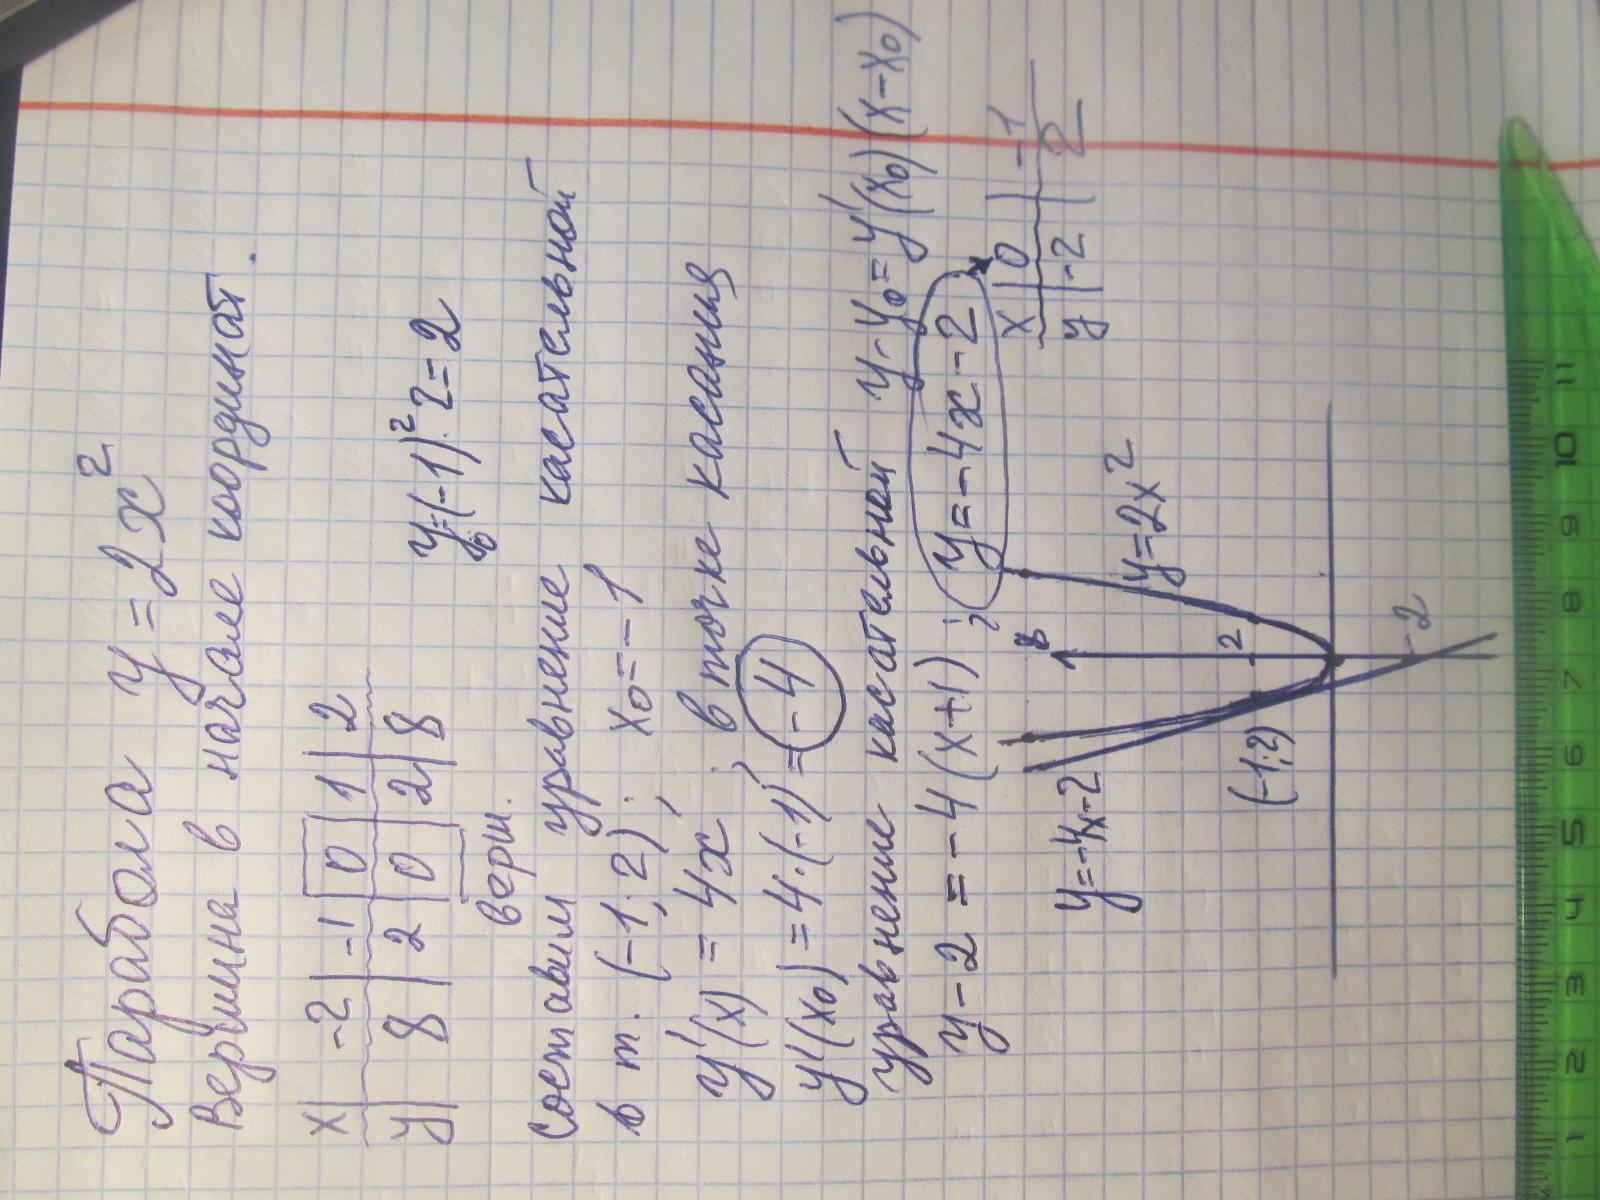 Парабола y = 2x²
Вершина в начале координат.
x | -2 | -1 | 0 | 1 | 2
y | 8 | 2 | 0 | 2 | 8
верш.
y₀=(-1)²·2=2
Составим уравнение касательной
в т. (-1; 2); x₀=-1
y'(x) = 4x; в точке касания
y'(x₀)=4·(-1)=-4
уравнение касательной y-y₀=y'(x₀)(x-x₀)
y-2=-4(x+1); y=-4x-2
x | 0 | -1
y | -2 | 2
y=-4x-2
8
y=2x²
(-1;2)
2
-2
1 2 3 4 5 6 7 8 9 10 11